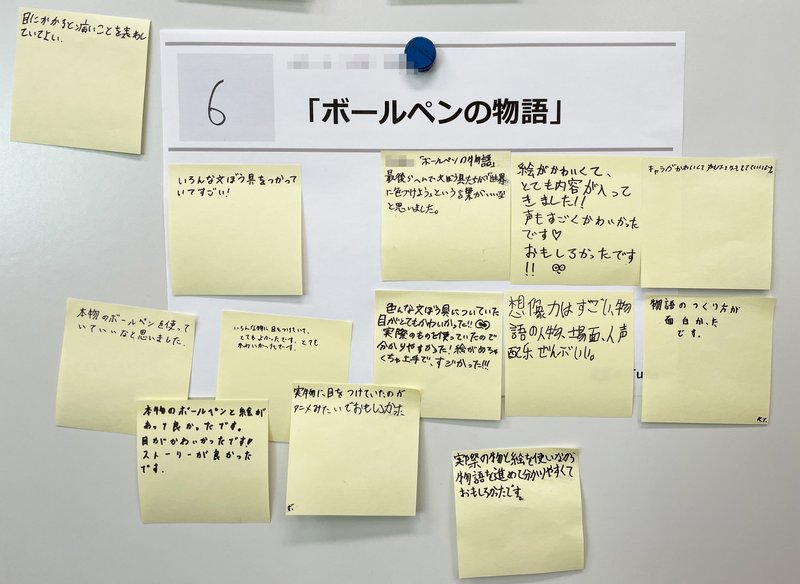 6
「ボールペンの物語」
していてよい。
いろんな文ぼう具をつかって
いてすごい!
「ボールペンの物語」
に色づけよう。という言葉がいいな
と思いました。
絵がかわいくて、
とても内容が入って
きました!!
声もすごくかわいかった
です♡
おもしろかったです
!!
本物のボールペンを使って
いていいなと思いました。
いろんな物に目をつけていて、
とてもよかったです。とても
かわいかったでーす。
色んな文ぼう具についていた
目がとてもかわいかった!!
実際のものを使っていたので
分かりやすかった!絵がめちゃ
くちゃ上手で、すごかった!!!
想像力はすごい、物
語の人物、場面、人声
配乐ぜんぶいい。
物語のつくり方が
面白かった
です。
K.T.
Tu
本物のボールペンと絵が
あって良かったです。
目がかわいかったです!
ストーリーが良かった
です。
実物に目をつけていたのが
アニメみたいでおもしろかった
実際の物と絵を使いながら
物語を進めて分かりやすくて
おもしろかったです。